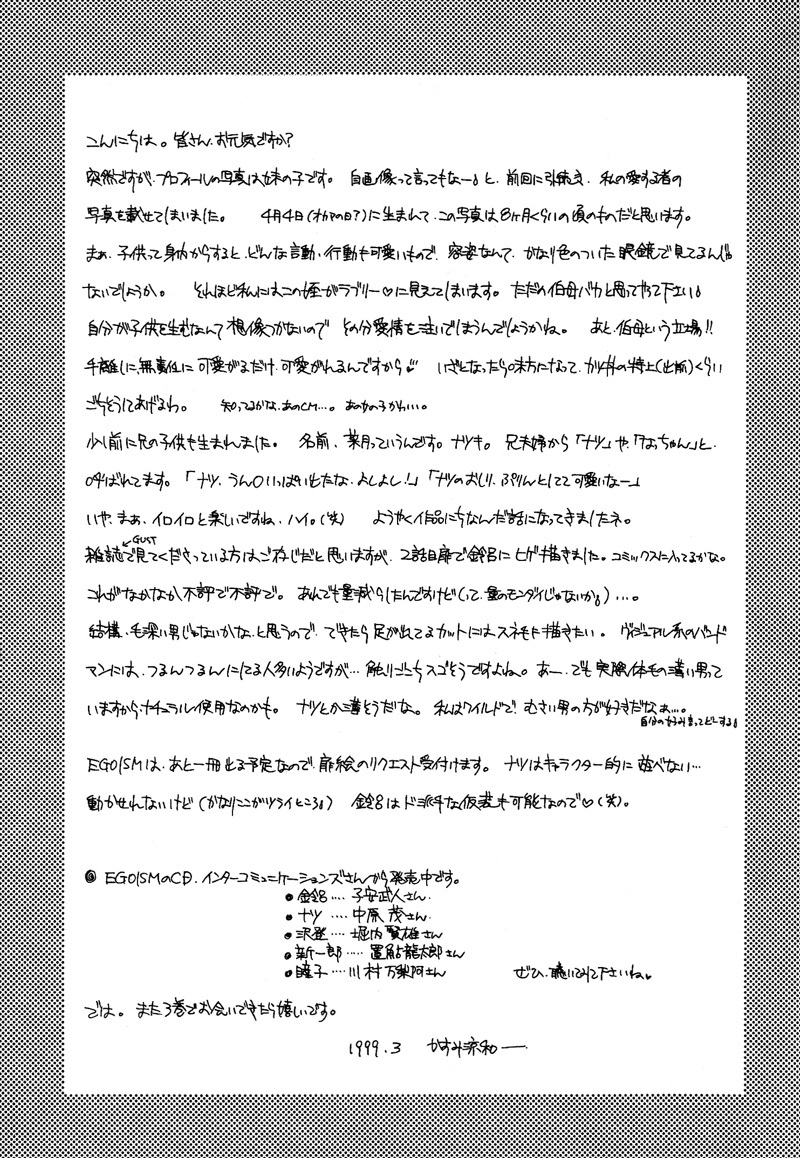 こんにちは。皆さん、お元気ですか?
突然ですが、プロフィールの写真は妹の子です。 自画像って言ってもなー。と、前回に引続き、私の愛する者の
写真を載せてしまいました。 4月4日(オカマの日?)に生まれて、この写真は8ヶ月くらいの頃のものだと思います。
まぁ、子供って身内からすると、どんな言動、行動も可愛いもので、容姿なんて、かなり色のついた眼鏡で見てるんじゃ
ないでしょうか。 それほど私にはこの姪がラブリー♡に見えてしまいます。ただの伯母バカと思ってやって下さい。
自分が子供を生むなんて想像つかないので その分愛情を注いでしまうんでしょうかね。 あと、伯母という立場!!
手離しに、無責任に可愛がるだけ、可愛がれるんですから♡ いざとなったら味方になって、カツ丼の特上(出前)くらい
ごちそうしてあげるわ。 知ってるかな、あのCM…。あの女の子かわいい。
少し前に兄の子供も生まれました。 名前、菜月っていうんです。ナツキ。 兄夫婦から「ナツ」や、「なっちゃん」と、
呼ばれてます。「ナツ、うん○いっぱい出たな、よしよし!」「ナツのおしり、ぷりんとしてて可愛いなー」
いや、まぁ、イロイロと楽しいですね、ハイ。(笑) ようやく作品にちなんだ話になってきましたネ。
GUST
雑誌で見てくださっている方はご存じだと思いますが、2話目扉で鈴呂にヒゲ描きました。コミックスに入ってるかな。
これがなかなか不評で不評で。 あれでも量減らしたんですけど(って、量のモンダイじゃないか。)…。
結構、毛深い男じゃないかな、と思うので、できたら足が出てるカットにはスネ毛も描きたい。 ヴィジュアル系のバンド
マンには、つるんつるんにしてる人多いようですが… 触りごこちスゴそうですよね。あー、でも実際体毛の薄い男って
いますからナチュラル使用なのかも。 ナツとか薄そうだな。 私はワイルドで、むさい男の方が好きだなぁ…。
自分の好み言ってどーする。
EGOISMは、あと一冊出る予定なので、扉絵のリクエスト受付けます。 ナツはキャラクター的に遊べない…
動かせれないけど(かなりここがツライところ。) 鈴呂はド派手な仮装も可能なので♡(笑)。
◎ EGOISMのCD、インターコミュニケーションズさんから発売中です。
●鈴呂…. 子安武人さん.
●ナツ …. 中原 茂さん.
●沢登…. 堀内賢雄さん
●新一郎…. 置鮎龍太郎さん
●瞳子…. 川村万梨阿さん ぜひ、聴いてみて下さいね♥
では。また3巻でお会いできたら嬉しいです。
1999.3 かすみ涼和